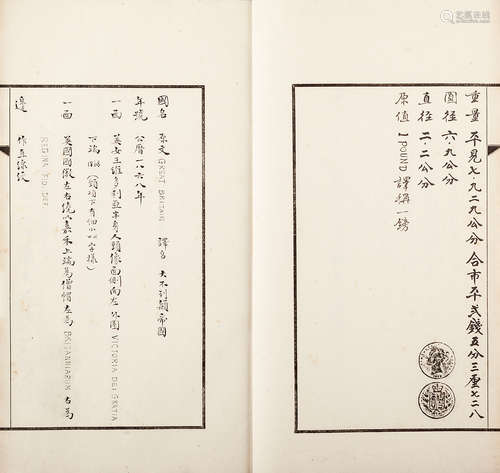 重量 平見七·九二九公分 合市平弍錢五分三厘七二八
圓徑 六·九公分
直徑 二·二公分
原值 1 POUND 譯稱一鎊
國名 原文 GREAT BRITAIN 譯名 大不列顛帝國
年號 公曆一八六八年
一面 英女王維多利亞半身人頭像面側向左 外圍 VICTORIA DEI GRATIA
下端 1868 (頸項下有細小W.W字樣)
一面 英國國徽左右繞以嘉禾上端為憎帽左為 BRITANNIARUM 右為
REGINA FID. DEF.
邊 作直線紋